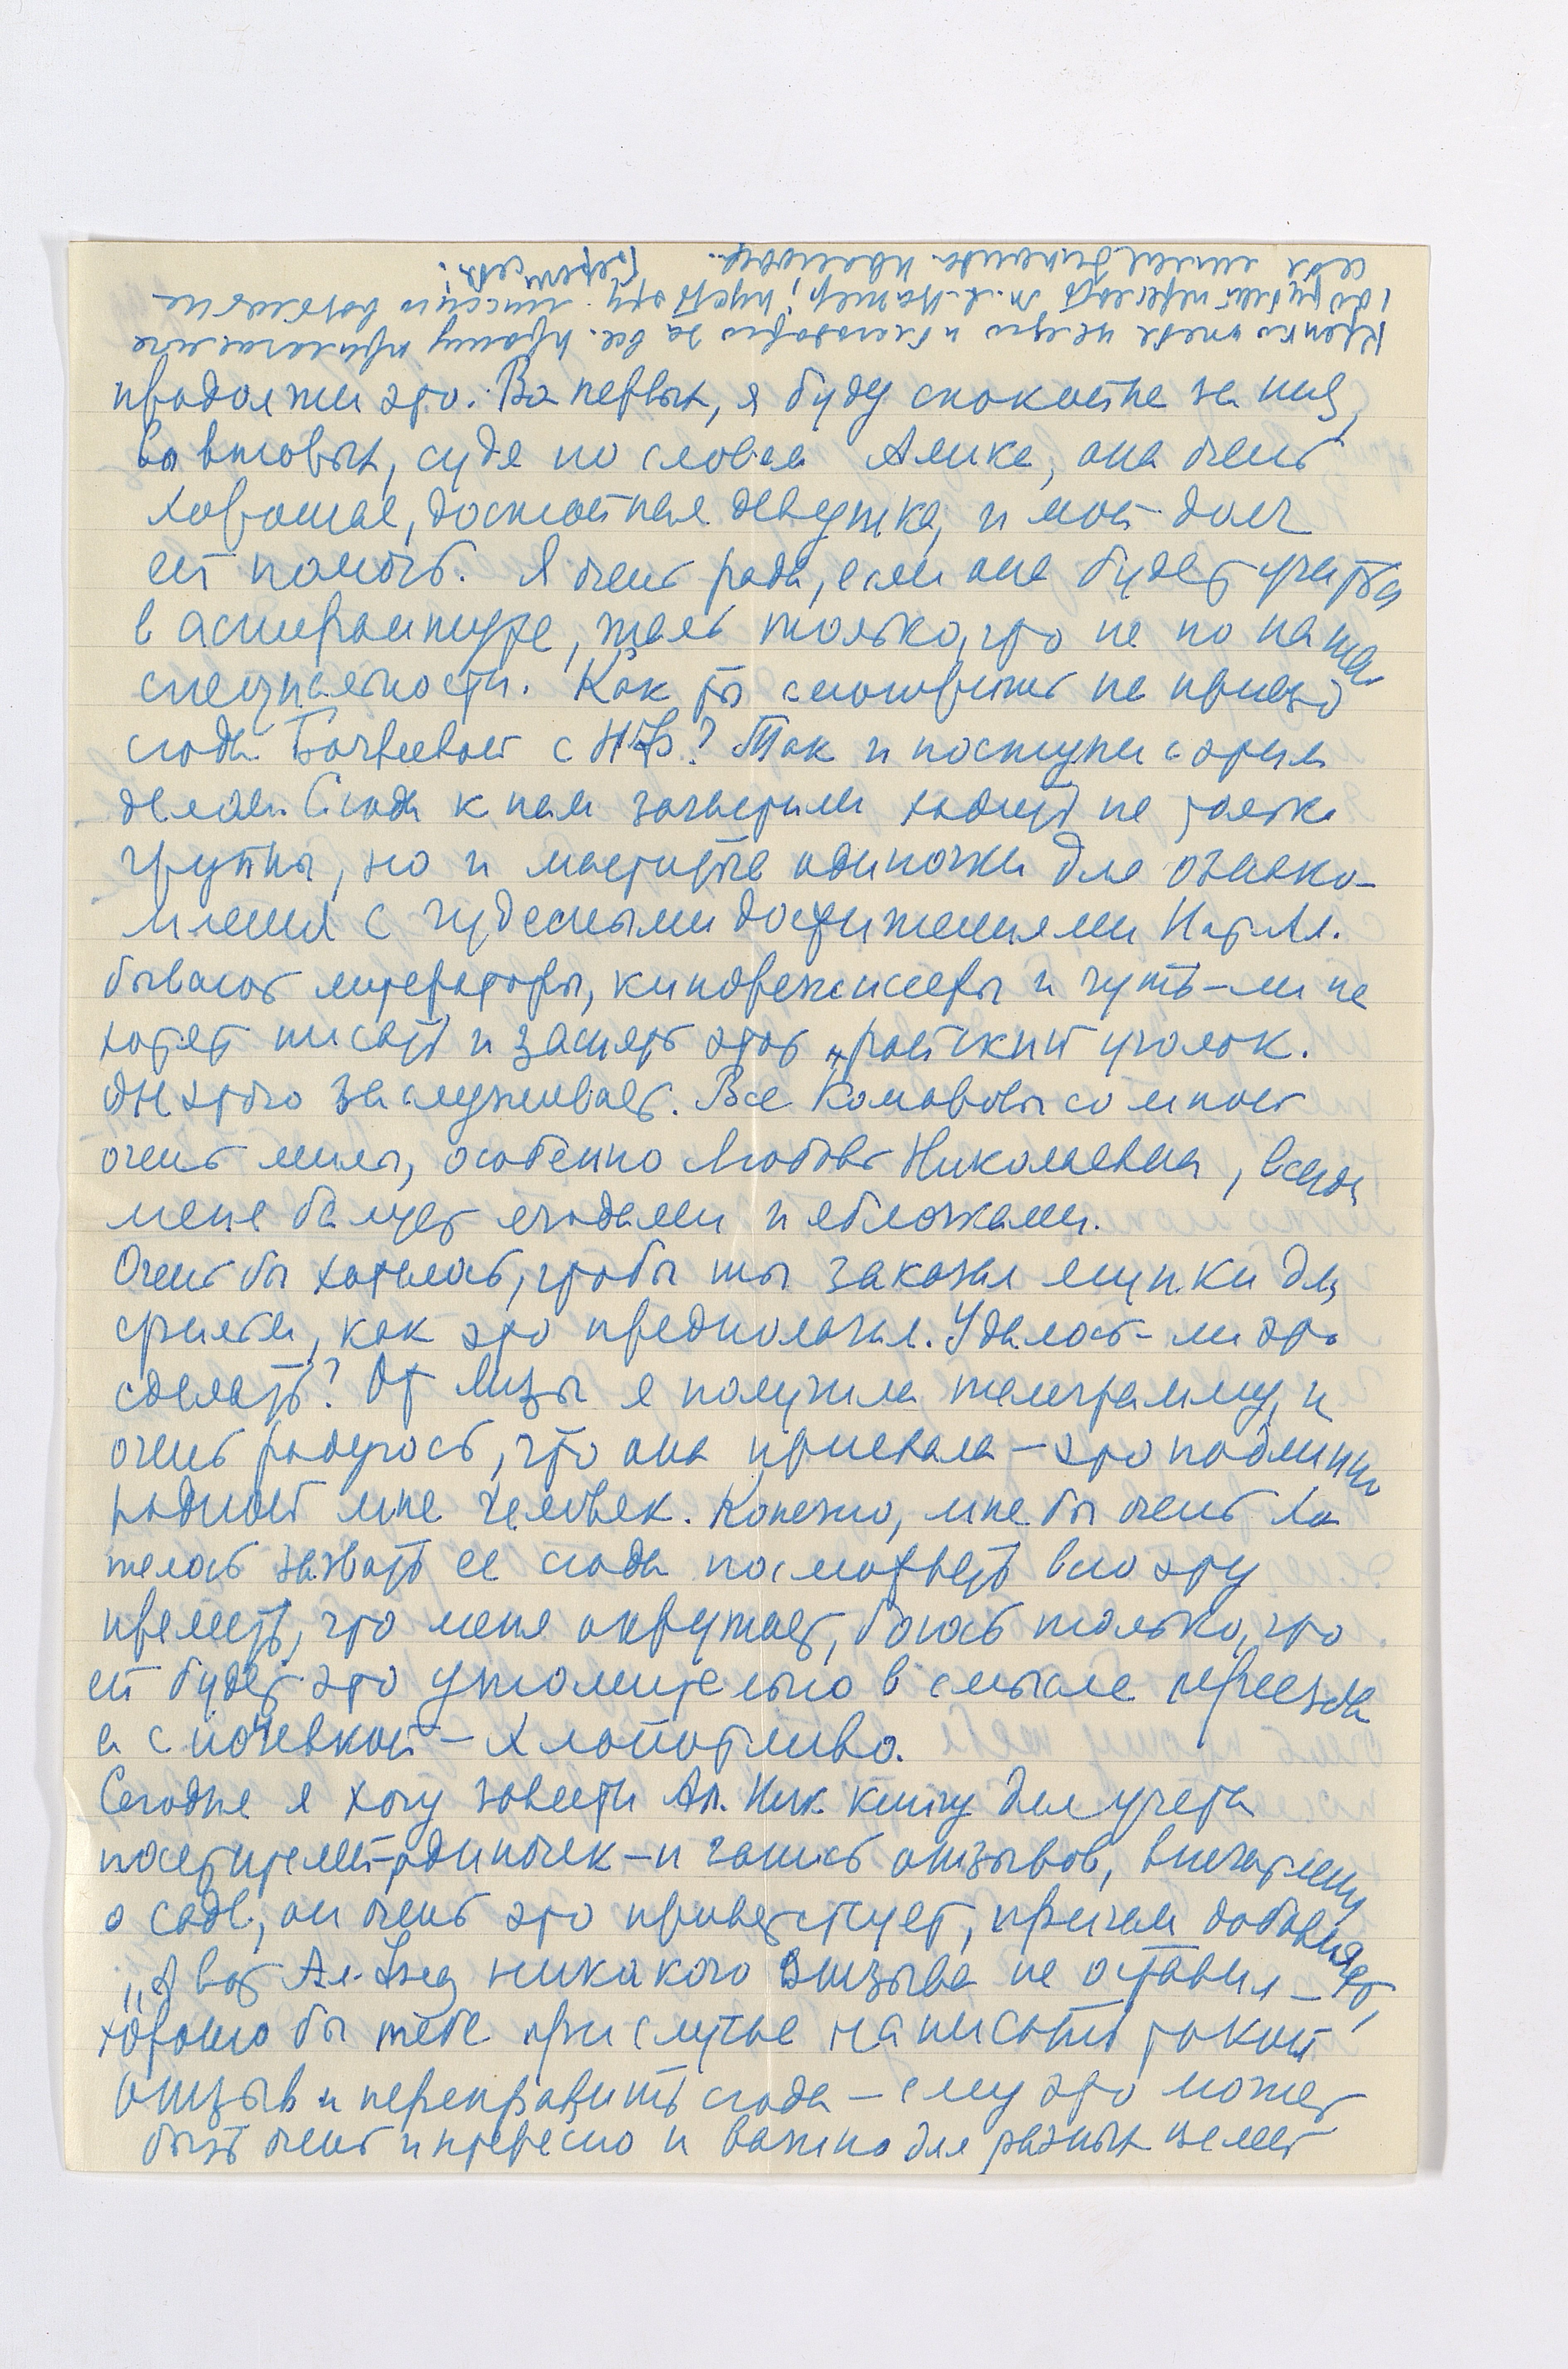 продолжи это. Во первых, я буду спокойна за нид,
во вторых, судя по словам Алика, она очень
хорошая, достойная девушка, и мой долг
ей помочь. Я очень рада, если она будет учиться
в аспирантуре, жаль только, что не по нашей
специальности. Как ты смотришь на приезд
сюда Богаевой с
Так и поступи с этим
делом. Сюда к нам зачастили ходить не только
группы, но и маститые одиночки для ознако-
мления с чудесными достижениями
бывают литераторы, кинорежиссеры и чуть-ли не
хотят писать и заснять этот „райский уголок.
Он этого заслуживает. Все Комаровы со мной
очень милы, особенно Любовь Николаевна, всегда
меня балует ягодами и яблочками.
Очень бы хотелось, чтобы ты заказал
как это предполагал. Удалось-ли это
сделать? От Лизы я получила телеграмму, и
очень радуюсь, что она приехала — это подлинно
родной мне человек. Конечно, мне бы очень хо
телось зазвать ее сюда посмотреть всю эту
прелесть, что меня окружает, боюсь только, что
ей будет это утомительно в смысле переезда
а с ночевкой — хлопотливо.
Сегодня я хочу завести Ал. Ник. книгу для учета
посетителей-одиночек — и запись отзывов, впечатлений
о саде, он очень это приветствует, причем добавляет,
„А вот Ал-др никакого отзыва не оставил —
хорошо бы тебе при случае написать такой
отзыв и переправить сюда — ему это может
быть очень интересно и важно для разных целей
Крепко тебя целую и благодарю за все. Прошу прилагаемые
рублей переслать
Береги себя!